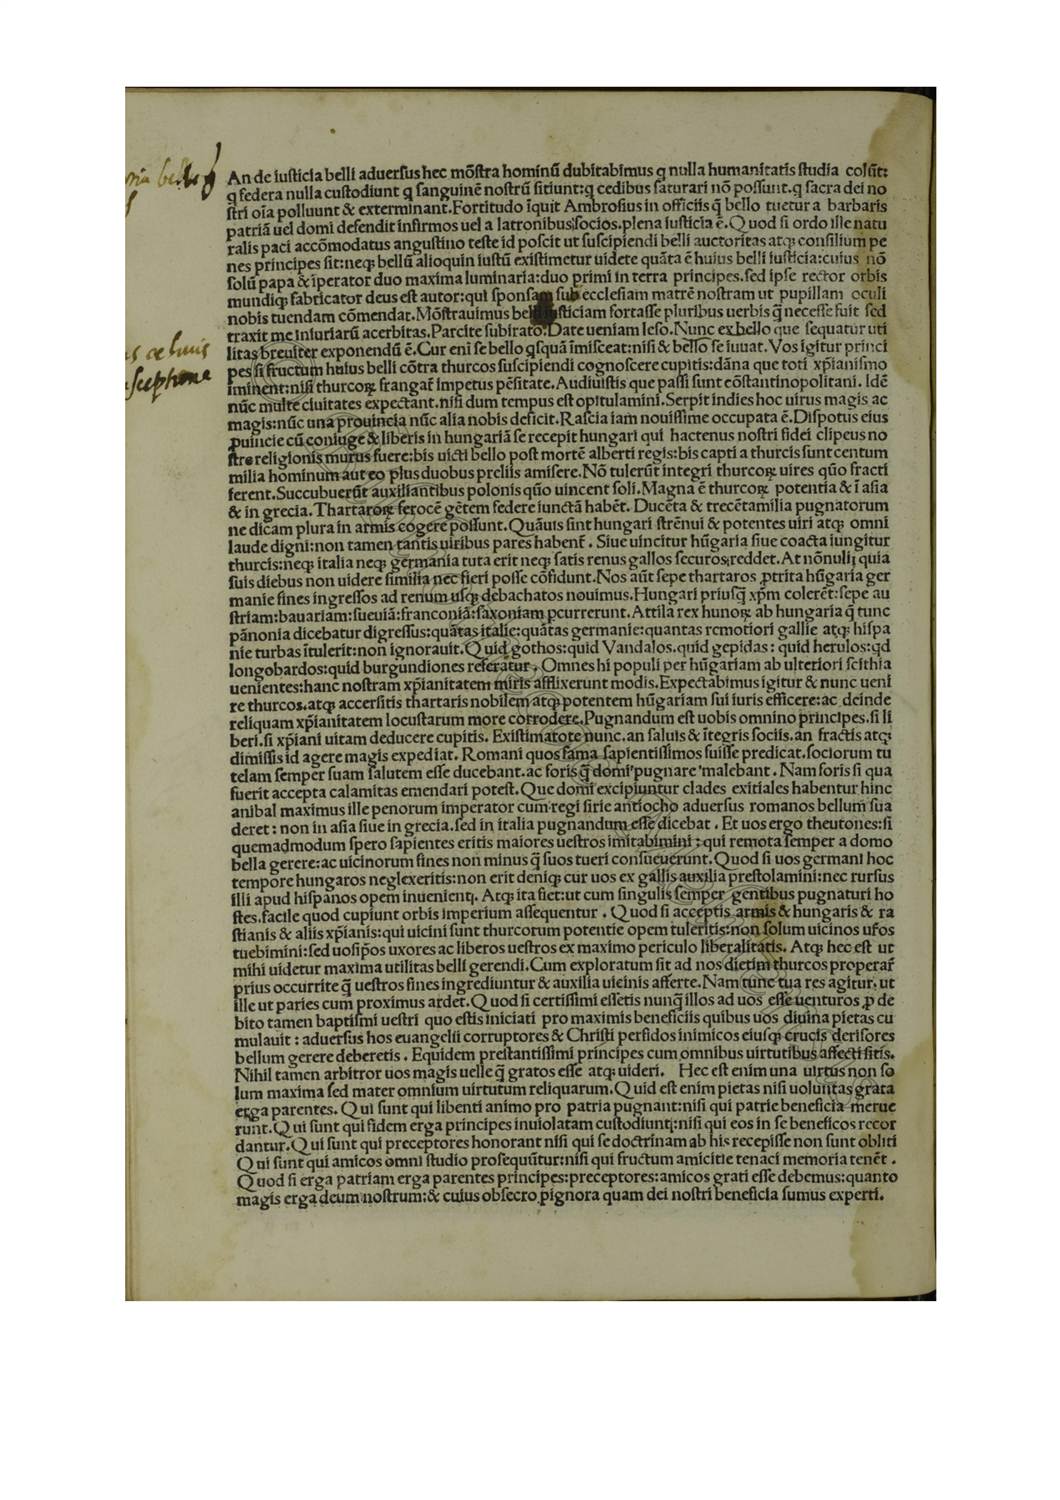 An de iusticia belli aduersus hec mõstra hominũ dubitabimus q nulla humanitatis studia colũt:
q federa nulla custodiunt q sanguinẽ nostrũ sitiunt:q cedibus saturari nõ possunt.q sacra dei no
stri oĩa polluunt & exterminant.Fortitudo ĩquit Ambrosius in officiis q̃ bello tuetur a barbaris
patriã uel domi defendit infirmos uel a latronibus socios.plena iusticia ẽ.Quod si ordo ille natu
ralis paci accõmodatus augustino teste id poscit ut suscipiendi belli auctoritas atqꝫ consilium pe
nes principes sit:neqꝫ bellũ alioquin iustũ existimetur uidete quãta ẽ huius belli iusticia:cuius nõ
solũ papa & ĩperator duo maxima luminaria:duo primi in terra principes.sed ipse rector orbis
mundiqꝫ fabricator deus est autor:qui sponsam sub ecclesiam matrẽ nostram ut pupillam oculi
nobis tuendam cõmendat.Mõstrauimus belli iusticiam fortasse pluribus uerbis q̃ necesse fuit sed
traxit me iniuriarũ acerbitas.Parcite subirato.Date ueniam leso.Nunc ex bello que sequatur uti
litas breuiter exponendũ ẽ.Cur eni se bello qsquã ĩmisceat:nisi & bello se iuuat.Vos igitur princi
pes si fructum huius belli cõtra thurcos suscipiendi cognoscere cupitis:dãna que toti xp̃ianismo
iminent:nisi thurcoꝝ frangat̃ impetus pẽsitate.Audiuistis que passi sunt cõstantinopolitani. Idẽ
nũc multe ciuitates expectant.nisi dum tempus est opitulamini.Serpit indies hoc uirus magis ac
magis:nũc una prouincia nũc alia nobis deficit.Rascia iam nouissime occupata ẽ.Dispotus eius
ꝓuincie cũ coniuge & liberis in hungariã se recepit hungari qui hactenus nostri fidei clipeus no
stre religionis murus fuere:bis uicti bello post mortẽ alberti regis:bis capti a thurcis sunt centum
milia hominum aut eo plus duobus preliis amisere.Nõ tulerũt integri thurcoꝝ uires quõ fracti
ferent.Succubuerũt auxiliantibus polonis quõ uincent soli.Magna ẽ thurcoꝝ potentia & ĩ asia
& in grecia.Thartaroꝝ ferocẽ gẽtem federe iunctã habẽt. Ducẽta & trecẽtamilia pugnatorum
ne dicam plura in armis cogere possunt.Quãuis sint hungari strẽnui & potentes uiri atqꝫ omni
laude digni:non tamen tantis uiribus pares habent̃. Siue uincitur hũgaria siue coacta iungitur
thurcis:neqꝫ italia neqꝫ germania tuta erit neqꝫ satis renus gallos securos reddet.At nõnulli quia
suis diebus non uidere similia nec fieri posse cõfidunt.Nos aũt sepe thartaros ꝓtrita hũgaria ger
manie fines ingressos ad renum usqꝫ debachatos nouimus.Hungari priusq̃ xp̃m colerẽt:sepe au
striam:bauariam:sueuiã:franconiã:saxoniam ꝑcurrerunt.Attila rex hunoꝝ ab hungaria q̃ tunc
pãnonia dicebatur digressus:quãtas italie:quãtas germanie:quantas remotiori gallie atqꝫ hispa
nie turbas ĩtulerit:non ignorauit.Quid gothos:quid Vandalos.quid gepidas: quid herulos:qd
longobardos:quid burgundiones referatur, Omnes hi populi per hũgariam ab ulteriori scithia
uenientes:hanc nostram xp̃ianitatem miris afflixerunt modis.Expectabimus igitur & nunc ueni
re thurcos.atqꝫ accersitis thartaris nobilem atqꝫ potentem hũgariam sui iuris efficere:ac deinde
reliquam xp̃ianitatem locustarum more corrodere.Pugnandum est uobis omnino principes.si li
beri.si xp̃iani uitam deducere cupitis. Existimatote nunc.an saluis & ĩtegris sociis.an fractis atqꝫ
dimissis id agere magis expediat. Romani quos fama sapientissimos fuisse predicat.sociorum tu
telam semper suam salutem esse ducebant.ac foris q̃ domi pugnare malebant. Nam foris si qua
fuerit accepta calamitas emendari potest. Que domi excipiuntur clades exitiales habentur hinc
anibal maximus ille penorum imperator cum regi sirie antiocho aduersus romanos bellum sua
deret: non in asia siue in grecia.sed in italia pugnandum esse dicebat. Et uos ergo theutones:si
quemadmodum spero sapientes eritis maiores uestros imitabimini: qui remota semper a domo
bella gerere:ac uicinorum fines non minus q̃ suos tueri consueuerunt.Quod si uos germani hoc
tempore hungaros neglexeritis:non erit deniqꝫ cur uos ex gallis auxilia prestolamini:nec rursus
illi apud hispanos opem inuenient. Atqꝫ ita fiet:ut cum singulis semper gentibus pugnaturi ho
stes.facile quod cupiunt orbis imperium assequentur. Quod si acceptis armis & hungaris & ra
stianis & aliis xp̃ianis:qui uicini sunt thurcorum potentie opem tuleritis:non solum uicinos ur̃os
tuebimini:sed uosip̃os uxores ac liberos uestros ex maximo periculo liberalitatis. Atqꝫ hec est ut
mihi uidetur maxima utilitas belli gerendi.Cum exploratum sit ad nos dietim thurcos properar̃
prius occurrite q̃ uestros fines ingrediuntur & auxilia uicinis afferte.Nam tunc tua res agitur. ut
ille ut paries cum proximus ardet.Quod si certissimi essetis nunq̃ illos ad uos esse uenturos ꝓ de
bito tamen baptismi uestri quo estis iniciati pro maximis beneficiis quibus uos diuina pietas cu
mulauit: aduersus hos euangelii corruptores & Christi perfidos inimicos eiusqꝫ crucis derisores
bellum gerere deberetis. Equidem prestantissimi principes cum omnibus uirtutibus affecti sitis.
Nihil tamen arbitror uos magis uelle q̃ gratos esse atqꝫ uideri. Hec est enim una uirtus non so
lum maxima sed mater omnium uirtutum reliquarum.Quid est enim pietas nisi uoluntas grata
erga parentes. Qui sunt qui libenti animo pro patria pugnant:nisi qui patrie beneficia merue
runt.Qui sunt qui fidem erga principes inuiolatam custodiunt:nisi qui eos in se beneficos recor
dantur.Qui sunt qui preceptores honorant nisi qui se doctrinam ab his recepisse non sunt obliti
Qui sunt qui amicos omni studio prosequũtur:nisi qui fructum amicitie tenaci memoria tenẽt.
Quod si erga patriam erga parentes principes:preceptores:amicos grati esse debemus:quanto
magis erga deum nostrum:& cuius obsecro pignora quam dei nostri beneficia sumus experti.